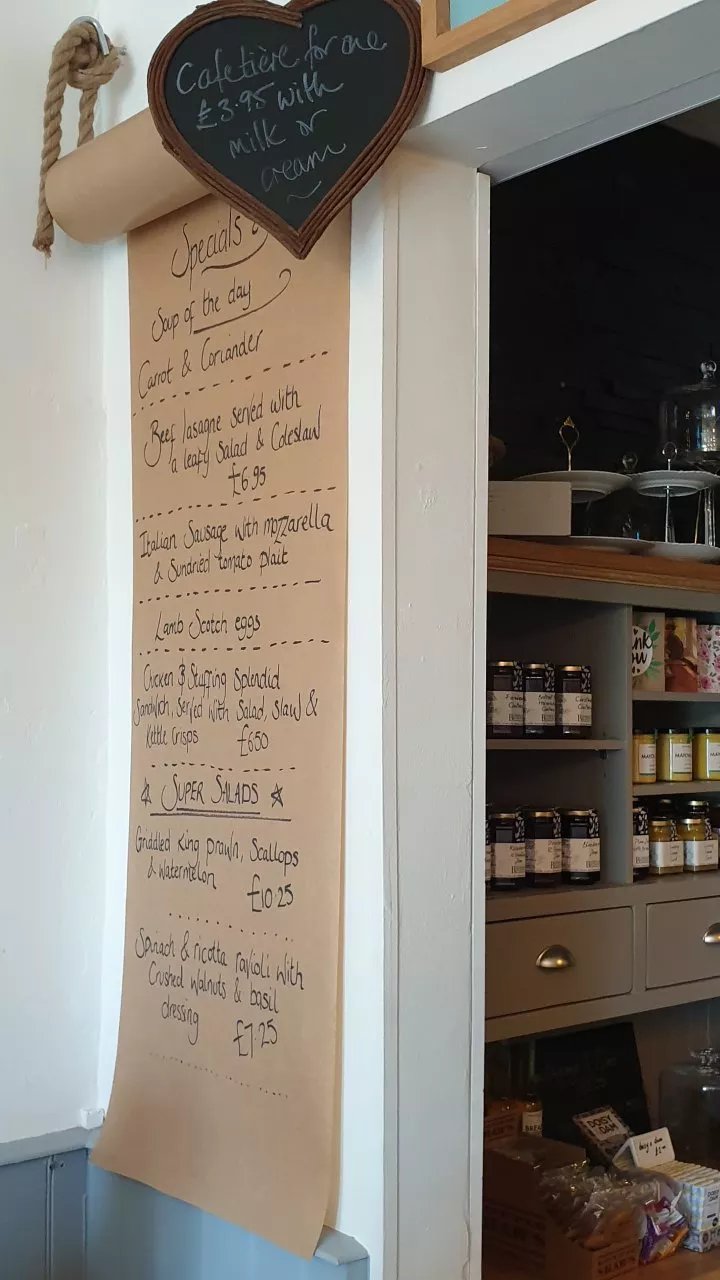 Cafetière for one
£3.95 with
milk or
cream
Specials
Soup of the day
Carrot & Coriander
Beef lasagne served with
a leafy Salad & Coleslaw
£6.95
Italian Sausage with mozzarella
& Sundried tomato plait
Lamb Scotch eggs
Chicken & Stuffing Splendid
Sandwich, Served with Salad, Slaw &
Kettle Crisps £6.50
SUPER SALADS
Griddled King prawn, Scallops
& Watermelon
£10.25
Spinach & ricotta ravioli with
Crushed Walnuts & basil
dressing
£7.25
DAISY
DAM